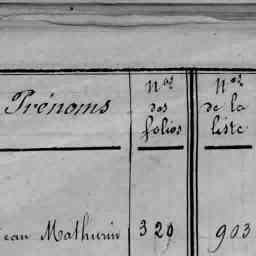 Prénoms
Nos
des
folios
Nos
de la
liste
ean Mathurin
329
903